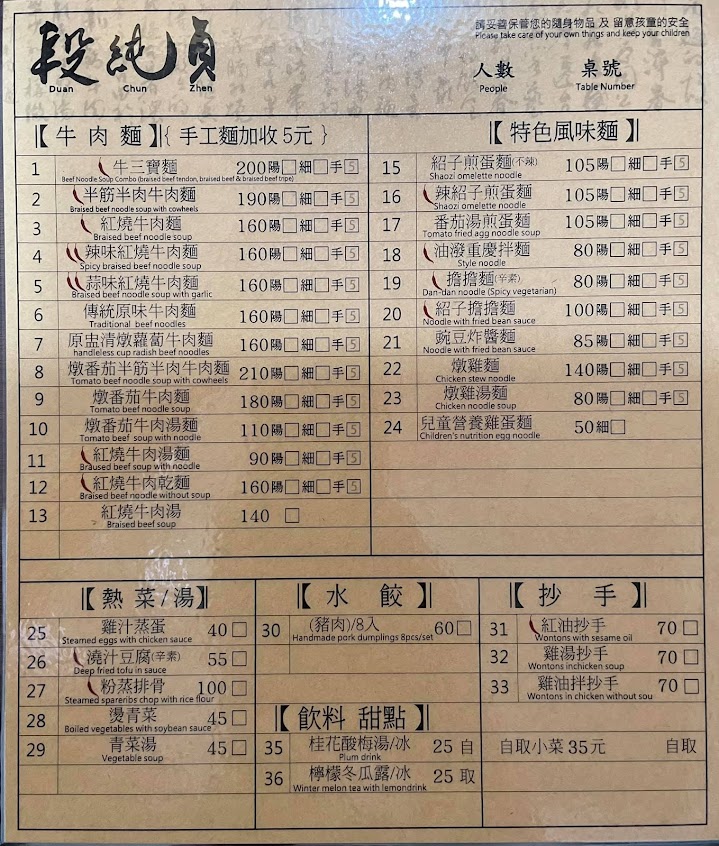 段純貞
Duan Chun Zhen
請妥善保管您的隨身物品 及 留意孩童的安全
Please take care of your own things and keep your children
人數 桌號
People Table Number
【牛肉麵】{ 手工麵加收 5元 }
1 牛三寶麵 200 陽□ 細□ 手5
Beef Noodle Soup Combo (braised beef tendon, braised beef & braised beef tripe)
2 半筋半肉牛肉麵 190 陽□ 細□ 手5
Braised beef noodle soup with cowheels
3 紅燒牛肉麵 160 陽□ 細□ 手5
Braised beef noodle soup
4 辣味紅燒牛肉麵 160 陽□ 細□ 手5
Spicy braised beef noodle soup
5 蒜味紅燒牛肉麵 160 陽□ 細□ 手5
Braised beef noodle soup with garlic
6 傳統原味牛肉麵 160 陽□ 細□ 手5
Traditional beef noodles
7 原盅清燉蘿蔔牛肉麵 160 陽□ 細□ 手5
handleless cup radish beef noodles
8 燉番茄半筋半肉牛肉麵 210 陽□ 細□ 手5
Tomato beef noodle soup with cowheels
9 燉番茄牛肉麵 180 陽□ 細□ 手5
Tomato beef noodle soup
10 燉番茄牛肉湯麵 110 陽□ 細□ 手5
Tomato beef soup with noodle
11 紅燒牛肉湯麵 90 陽□ 細□ 手5
Braused beef soup with noodle
12 紅燒牛肉乾麵 160 陽□ 細□ 手5
Braised beef noodle without soup
13 紅燒牛肉湯 140 □
Braised beef soup
【特色風味麵】
15 紹子煎蛋麵(不辣) 105 陽□ 細□ 手5
Shaozi omelette noodle
16 辣紹子煎蛋麵 105 陽□ 細□ 手5
Shaozi omelette noodle
17 番茄湯煎蛋麵 105 陽□ 細□ 手5
Tomato fried agg noodle soup
18 油潑重慶拌麵 80 陽□ 細□ 手5
Style noodle
19 擔擔麵(辛素) 80 陽□ 細□ 手5
Dan-dan noodle (Spicy vegetarian)
20 紹子擔擔麵 100 陽□ 細□ 手5
Noodle with fried bean sauce
21 豌豆炸醬麵 85 陽□ 細□ 手5
Noodle with fried bean sauce
22 燉雞麵 140 陽□ 細□ 手5
Chicken stew noodle
23 燉雞湯麵 80 陽□ 細□ 手5
Chicken noodle soup
24 兒童營養雞蛋麵 50 細□
Children's nutrition egg noodle
【熱菜/湯】
25 雞汁蒸蛋 40 □
Steamed eggs with chicken sauce
26 澆汁豆腐(辛素) 55 □
Deep fried tofu in sauce
27 粉蒸排骨 100 □
Steamed spareribs chop with rice flour
28 燙青菜 45 □
Boiled vegetables with soybean sauce
29 青菜湯 45 □
Vegetable soup
【水餃】
30 (豬肉)/8入 60 □
Handmade pork dumplings 8pcs/set
【飲料 甜點】
35 桂花酸梅湯/冰 25 自
Plum drink
36 檸檬冬瓜露/冰 25 取
Winter melon tea with lemondrink
【抄手】
31 紅油抄手 70 □
Wontons with sesame oil
32 雞湯抄手 70 □
Wontons inchicken soup
33 雞油拌抄手 70 □
Wontons in chicken without sou
自取小菜 35元 自取